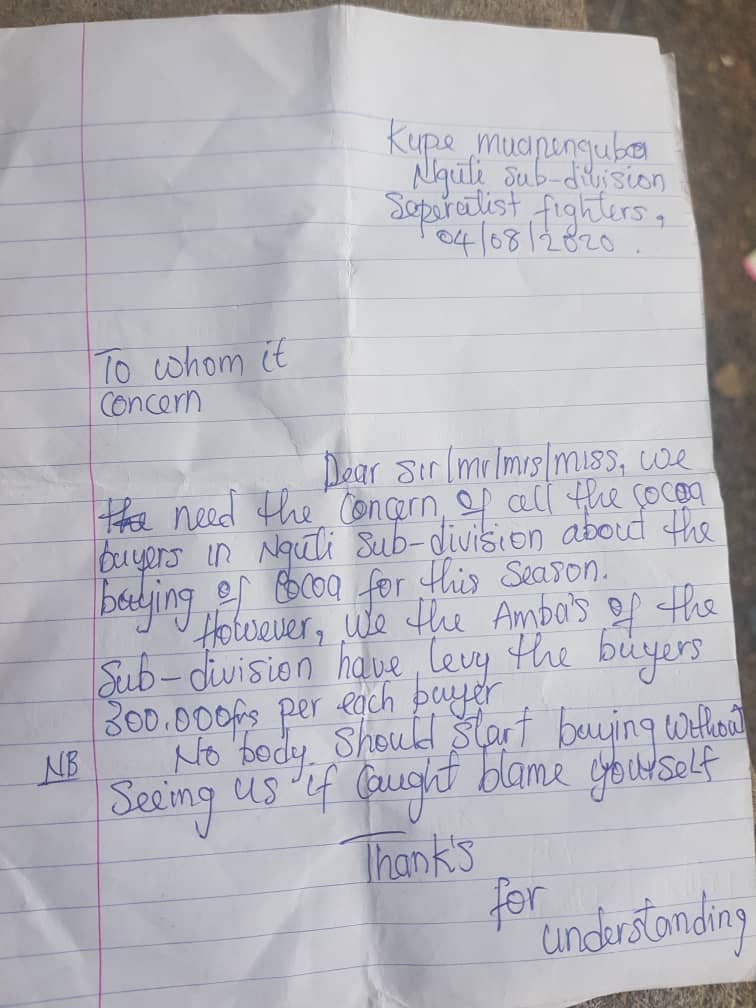 Kupe muanenguba
Nguti Sub-division
Seperatist fighters,
04/08/2020.
To whom it
concern
Dear Sir/mr/mrs/miss, we
the need the concern of all the cocoa
buyers in Nguti Sub-division about the
buying of cocoa for this season.
However, we the Amba's of the
Sub-division have levy the buyers
300.000frs per each buyer
NB No body should start buying without
Seeing us if caught blame yourself
Thank's
for
understanding